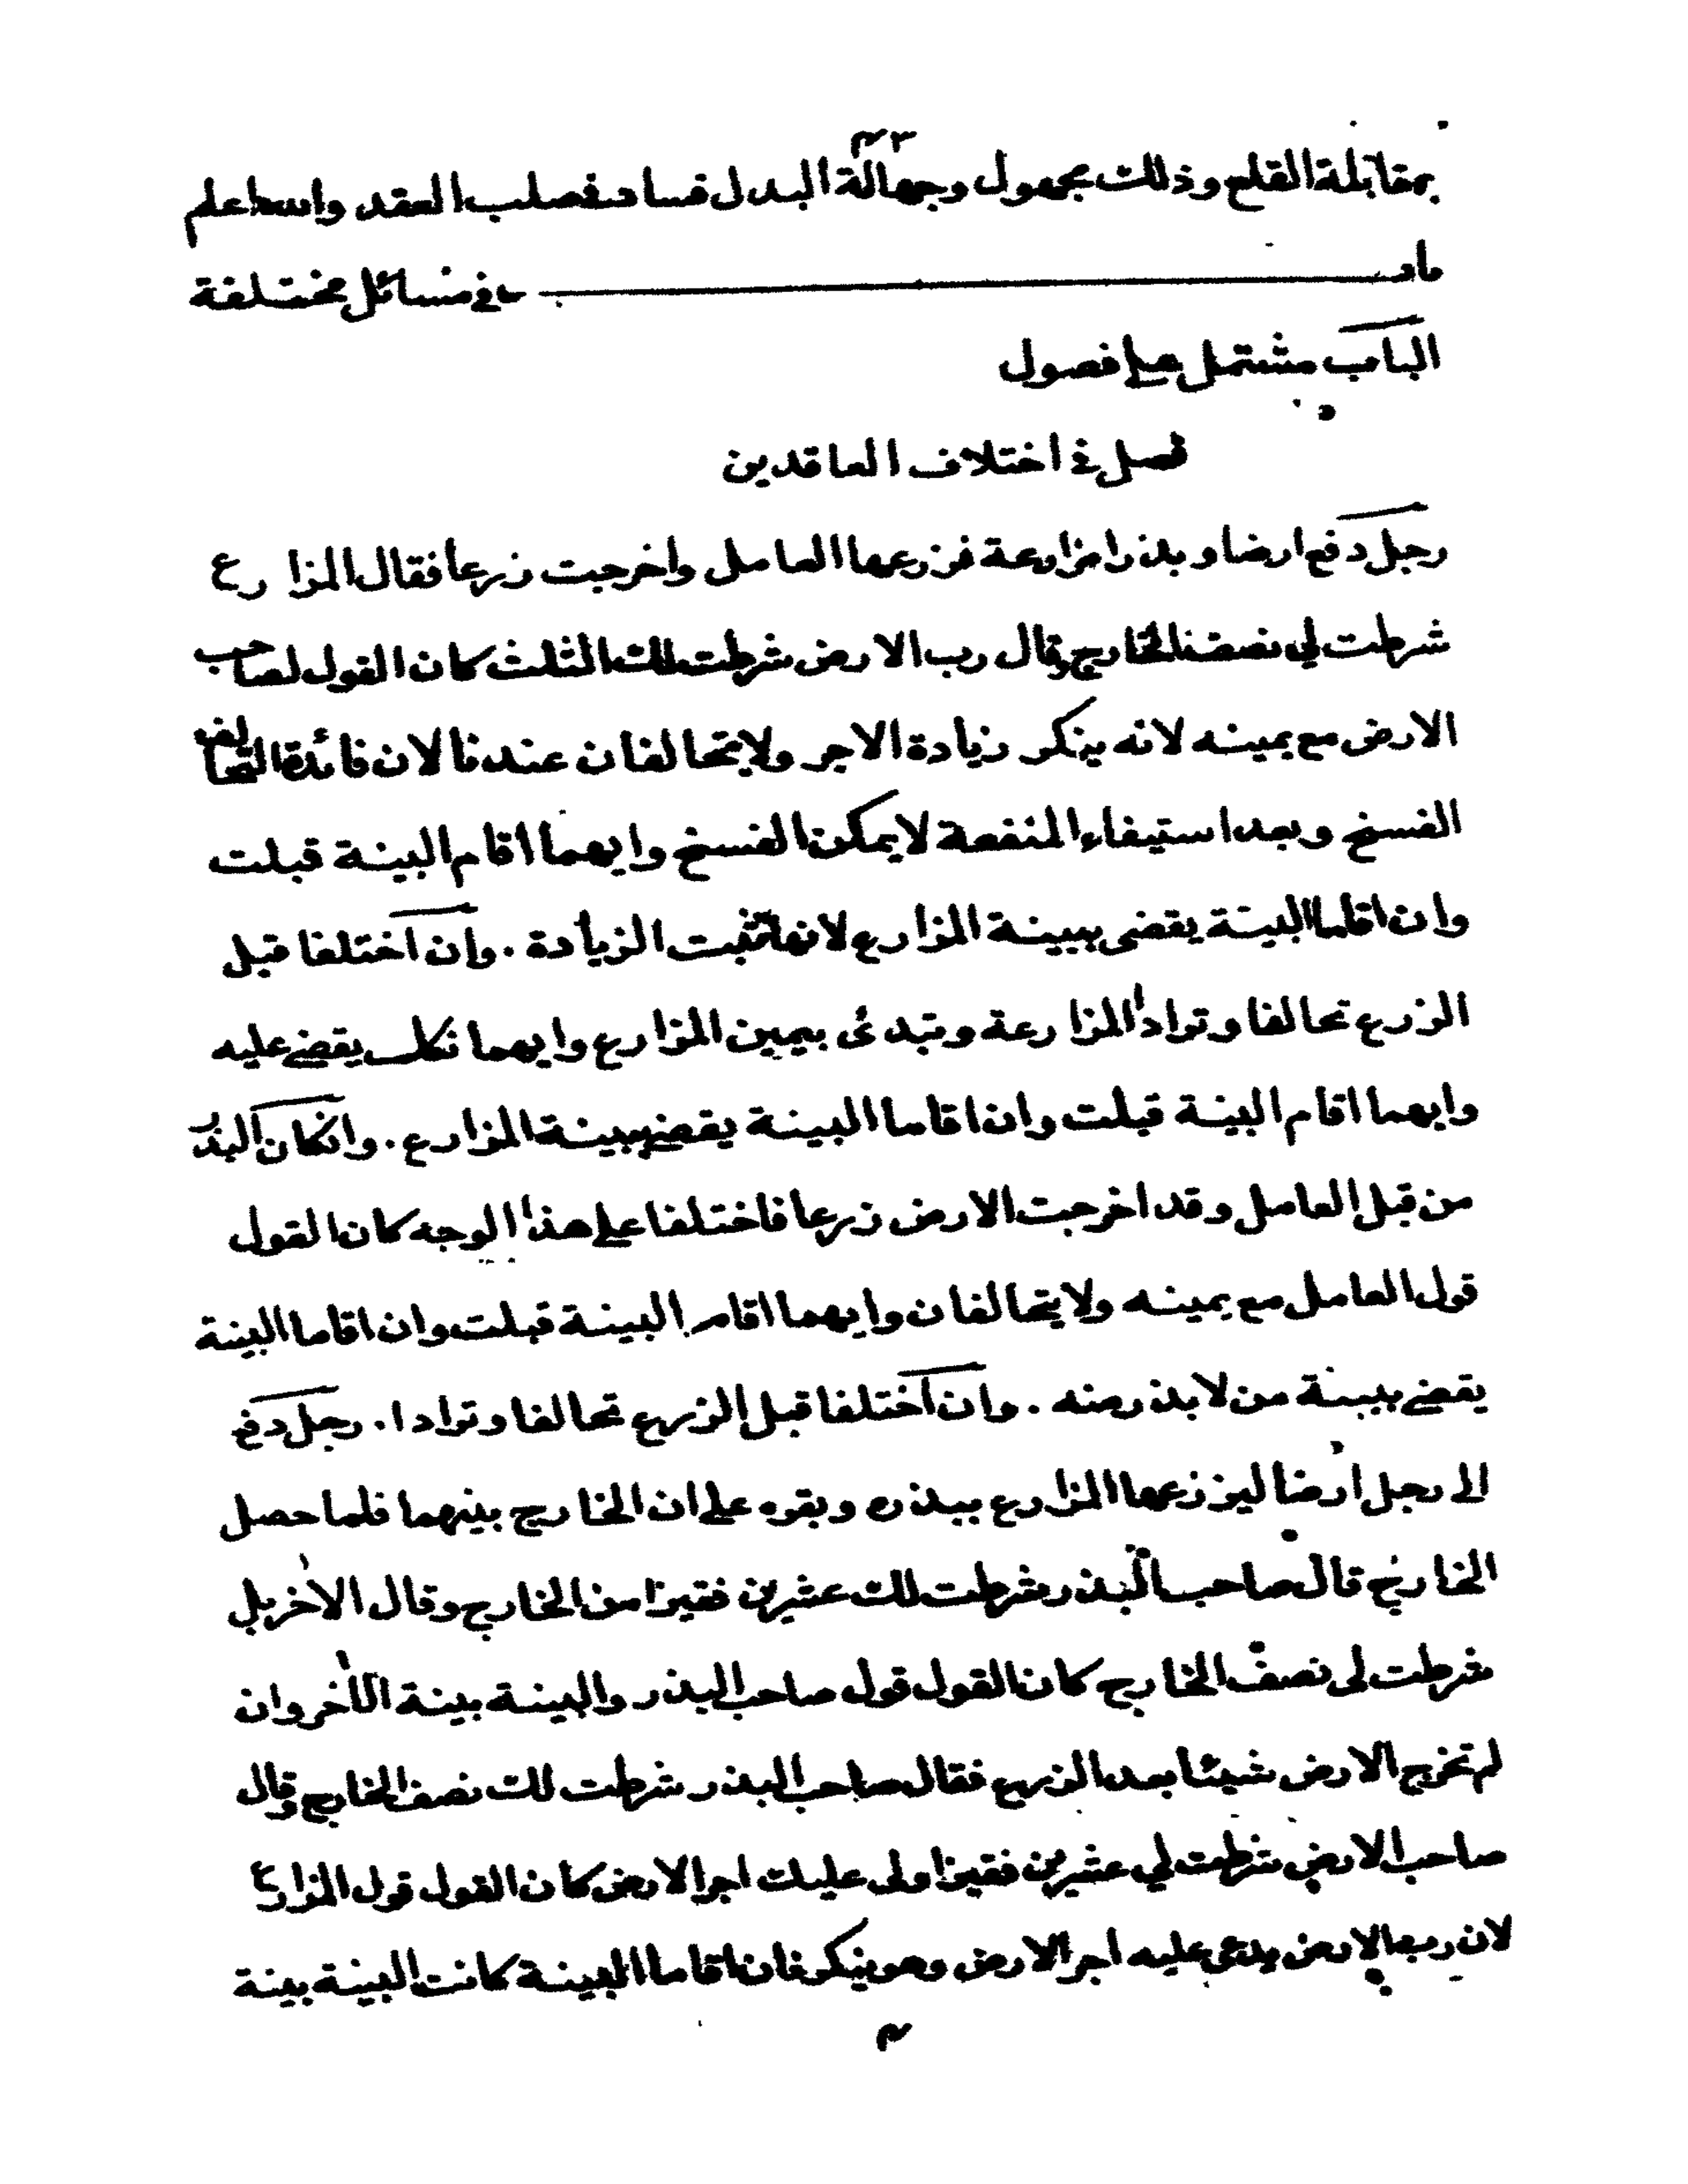 ٤٣
بمقابلة القلع وذلك مجهول وجهالة البدل فساد في صلب العقد والله اعلم
باب في مسائل مختلفة
الباب مشتمل على فصول
فصل في اختلاف العاقدين
رجل دفع ارضا وبذرا مزارعة فزرعها العامل واخرجت زرعا فقال المزارع
شرطت لي نصف الخارج وقال رب الارض شرطت لك الثلث كان القول لصاحب
الارض مع يمينه لانه ينكر زيادة الاجر ولا يتحالفان عندنا لان فائدة التحالف
الفسخ وبعد استيفاء المنفعة لا يمكن الفسخ وايهما اقام البينة قبلت
وان اقاما البينة يقضى ببينة المزارع لانها تثبت الزيادة . وان اختلفا قبل
الزرع تحالفا وترادا المزارعة وتبدئ بيمين المزارع وايهما نكل يقضى عليه
وايهما اقام البينة قبلت وان اقاما البينة يقضى ببينة المزارع . وان كان البذر
من قبل العامل وقد اخرجت الارض زرعا فاختلفا على هذا الوجه كان القول
قول العامل مع يمينه ولا يتحالفان وايهما اقام البينة قبلت وان اقاما البينة
يقضى ببينة من لا بذر منه . وان اختلفا قبل الزرع تحالفا وترادا . رجل دفع
الى رجل ارضا ليزرعها المزارع ببذره وبقره على ان الخارج بينهما فلما حصل
الخارج قال صاحب البذر شرطت لك عشرين قفيزا من الخارج وقال الاخر بل
شرطت لى نصف الخارج كان القول قول صاحب البذر والبينة بينة الاخر وان
لم تخرج الارض شيئا بعد الزرع فقال صاحب البذر شرطت لك نصف الخارج وقال
صاحب الارض شرطت لي عشرين قفيزا ولى عليك اجر الارض كان القول قول المزارع
لان رب الارض يدعى عليه اجر الارض وهو ينكر فان اقاما البينة كانت البينة بينة